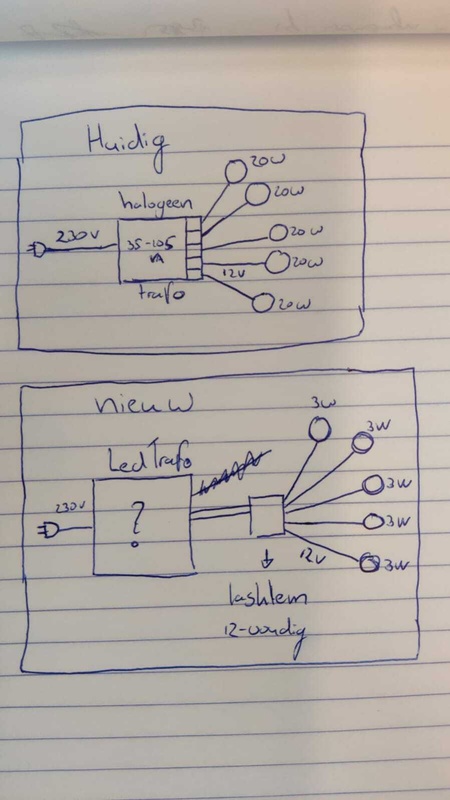 Huidig
halogeen
230V
35-105
VA
trafo
20W
20W
20W
20W
12V
20W
nieuw
Led Trafo
230V
?
3W
3W
3W
3W
12V
3W
lasklem
12-voudig